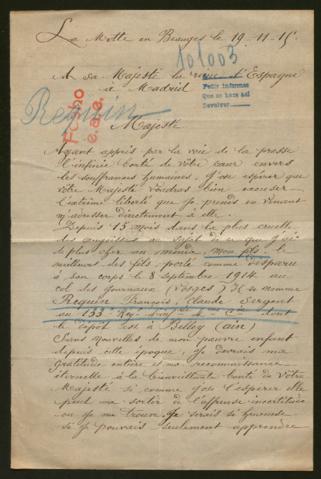 La Motte en Beauges le 19-11-15
101.003
A sa Majesté d'Espagne
à Madrid
Pedir informes
Devolver
Requin
Majesté
Ayant appris par la voie de la presse
l'infinie bonté de votre cœur envers
les souffrances humaines. J'ose espérer que
votre Majesté voudras bien excuser
l'extrême liberté que je prends en venant
m'adresser directement à elle.
Depuis 15 mois dans la plus cruelle
des au sujet de ce que j'ai
le plus cher au monde, mon fils le
meilleurs des fils porté comme disparu
à son corps le 8 Septembre 1914 au
col des Journaux (Vosges) Il se nomme
Requin François, Claude Sergent
au 133 Reg. Inf. 4me Cie dont
le dépôt est à Belley (ain)
Sans nouvelles de mon pauvre enfant
depuis cette époque. Je devrais ma
gratitude entière et ma reconnaissance
éternelle à la bienveillante bonté de Votre
Majesté si comme j'ose l'espérer elle
peut me sortir de l'affreuse incertitude
ou je me trouve. Je serais si heureuse
si je pouvais seulement apprendre